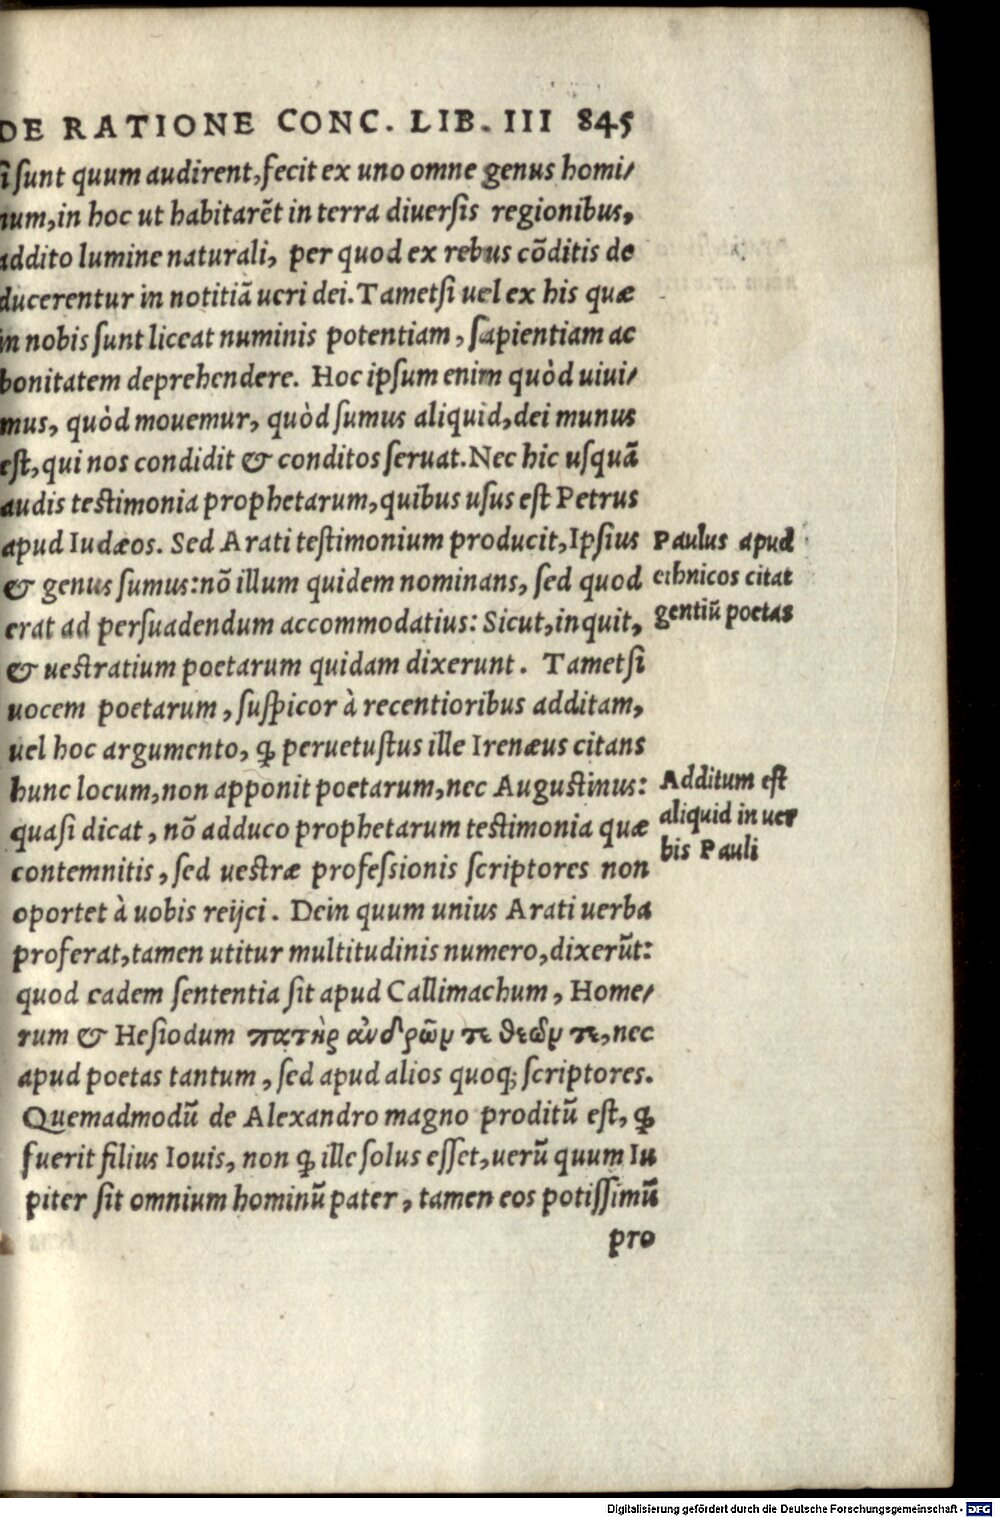 DE RATIONE CONC. LIB. III 845
si sunt quum audirent, fecit ex uno omne genus homi/
num, in hoc ut habitarēt in terra diuersis regionibus,
addito lumine naturali, per quod ex rebus cōditis de
ducerentur in notitiā ueri dei. Tametsi uel ex his quæ
in nobis sunt liceat numinis potentiam, sapientiam ac
bonitatem deprehendere. Hoc ipsum enim quòd uiui/
mus, quòd mouemur, quòd sumus aliquid, dei munus
est, qui nos condidit & conditos seruat. Nec hic usquā
audis testimonia prophetarum, quibus usus est Petrus
apud Iudæos. Sed Arati testimonium producit, Ipsius
& genus sumus: nō illum quidem nominans, sed quod
erat ad persuadendum accommodatius: Sicut, inquit,
& uestratium poetarum quidam dixerunt. Tametsi
uocem poetarum, suspicor à recentioribus additam,
uel hoc argumento, ꝙ peruetustus ille Irenæus citans
hunc locum, non apponit poetarum, nec Augustinus:
quasi dicat, nō adduco prophetarum testimonia quæ
contemnitis, sed uestræ professionis scriptores non
oportet à uobis reijci. Dein quum unius Arati uerba
proferat, tamen utitur multitudinis numero, dixerūt:
quod eadem sententia sit apud Callimachum, Home/
rum & Hesiodum πατὴρ ἀνδρῶν τε θεῶν τε, nec
apud poetas tantum, sed apud alios quoq; scriptores.
Quemadmodū de Alexandro magno proditū est, ꝙ
fuerit filius Iouis, non ꝙ ille solus esset, uerū quum Iu
piter sit omnium hominū pater, tamen eos potissimū
pro
Paulus apud
ethnicos citat
gentiū poetas
Additum est
aliquid in uer
bis Pauli
Digitalisierung gefördert durch die Deutsche Forschungsgemeinschaft - DFG